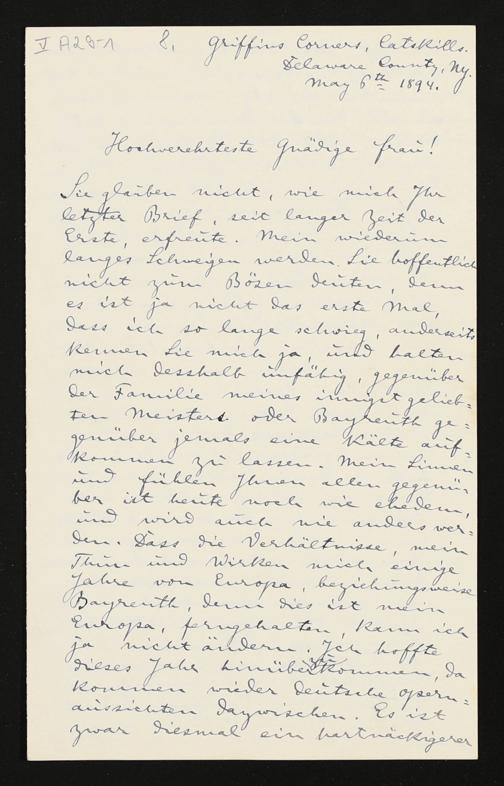 V A28-1
8, Griffins Corners, Catskills.
Delaware County, Ny.
May 6th 1894.
Hochverehrteste Gnädige Frau!
Sie glauben nicht, wie mich Ihr
letzter Brief, seit langer Zeit der
Erste, erfreute. Mein wiederum
langes Schweigen werden Sie hoffentlich
nicht zum Bösen deuten, denn
es ist ja nicht das erste Mal,
dass ich so lange schwieg, anderseits
kennen Sie mich ja, und halten
mich desshalb unfähig, gegenüber
der Familie meines innigst gelieb-
ten Meisters oder Bayreuth ge-
genüber jemals eine Kälte auf-
kommen zu lassen. Mein Sinnen
und fühlen Ihnen allen gegenü-
ber ist heute noch wie ehedem,
und wird auch nie anders wer-
den. Dass die Verhältnisse, mein
Thun und Wirken mich einige
Jahre von Europa, beziehungsweise
Bayreuth, denn dies ist mein
Europa, ferngehalten, kann ich
ja nicht ändern. Ich hoffte
dieses Jahr hinüberzukommen, da
kommen wieder deutsche opern-
aussichten dazwischen. Es ist
zwar diesmal ein hartnäckigerer